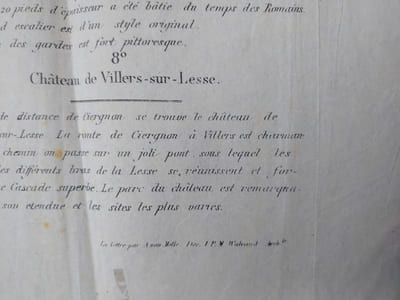 20 pieds d'épaisseur a été bâtie du temps des Romains.
d escalier est d'un style original.
des gardes est fort pittoresque.
8º
Château de Villers-sur-Lesse.
de distance de Ciergnon se trouve le château de
sur-Lesse. La route de Ciergnon à Villers est charman
chemin on passe sur un joli pont, sous lequel les
les différents bras de la Lesse se réunissent et for-
e Cascade superbe. Le parc du château est remarqua-
son etendue et les sites les plus variés.
La lettre par